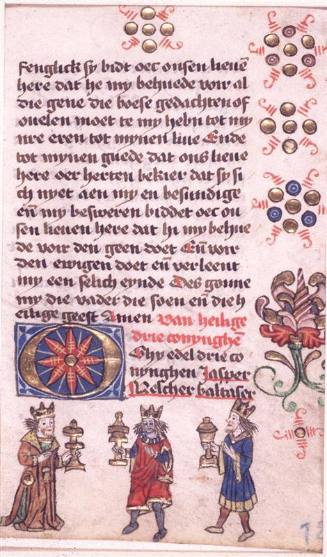 fenglick sy bidt oec onsen lieuen
here dat he my behuede voir al
die gene die boese gedachten of
ouelen moet te my hebn tot my
nre eren tot mynen liue Ende
tot mynen guede dat ons lieue
here oer herten bekier dat sy si
ch nyet aen my en besundige
en my besweren biddet oec on
sen lieuen here dat hi my behue
de voir den geen doet En voir
den ewigen doet en verleent
my een selich eynde Des gonne
my die vader die soen en die h
eilige geest Amen Van heilige
drie conynghe
Ghy edel drie co
nynghen Jasper
Melcher baltaser